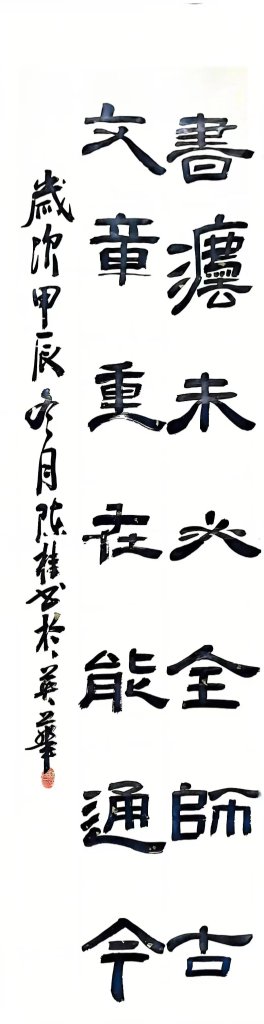 書灋未必全師古
文章重在能通今
歲次甲辰冬月陳桂书於英華